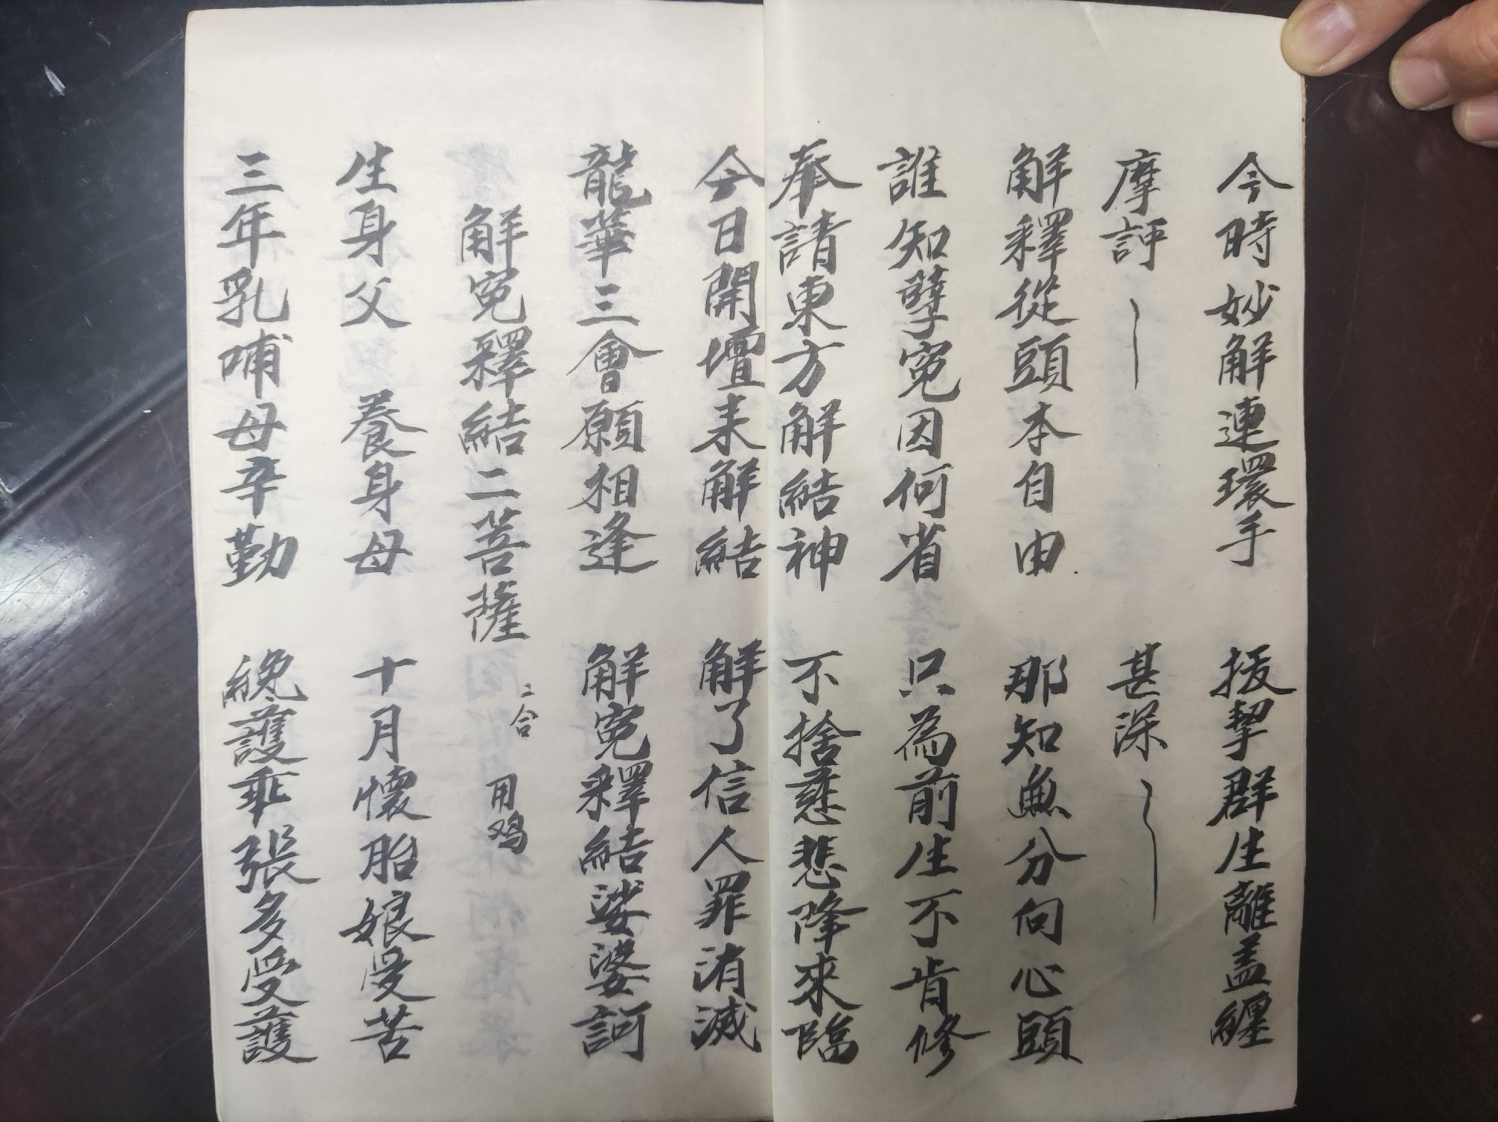 今時妙解連環手　拔挈群生離盖纏
摩訶　甚深
解釋從頭本自由　那知魚分向心頭
誰知孽寃因何省　只為前生不肯修
奉請東方解結神　不捨慈悲降來臨
今日開壇来解結　解了信人罪消滅
龍華三會願相逢　解寃釋結娑婆訶
解寃釋結二菩薩　二合　用鸡
生身父　養身母　十月懷胎娘受苦
三年乳哺母辛勤　護乖張多受護